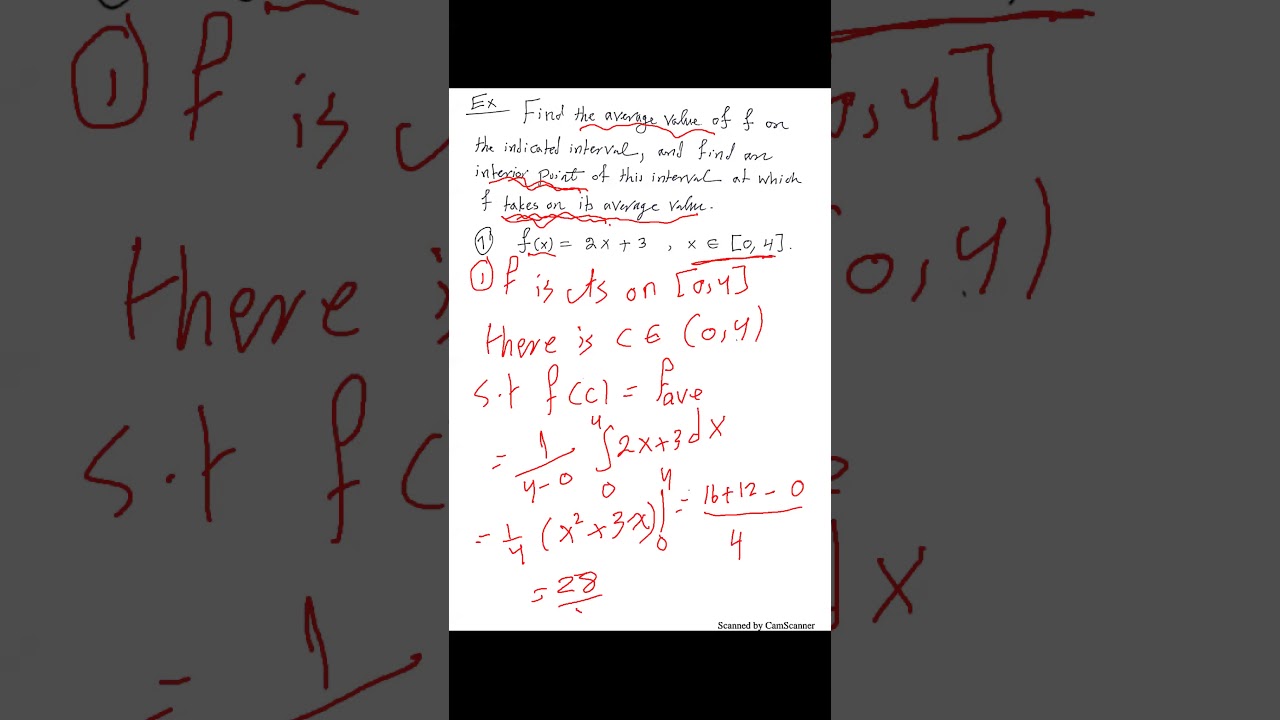 Ex Find the average value of f on
the indicated interval, and find an
interior point of this interval at which
f takes on its average value.
① f(x) = 2x + 3 , x ∈ [0, 4].
① f is cts on [0,4]
there is c ∈ (0,4)
s.t f(c) = f_ave
= 1/(4-0) ∫₀⁴ 2x+3 dx
= 1/4 (x² + 3x)|₀⁴ = (16+12-0)/4
= 28
Scanned by CamScanner